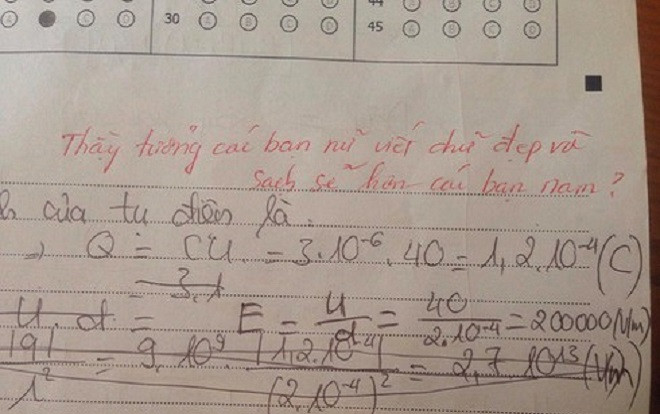 A B C D 30 A B C D 44
45 A B C D
Thầy tưởng các bạn nữ viết chữ đẹp và
sạch sẽ hơn các bạn nam?
của tụ điện là:
⇒ Q = CU = 3.10⁻⁶.40 = 1,2.10⁻⁴(C)
3,1
U.d = E = U/d = 40/2.10⁻⁴ = 200000(V/m)
|9|/1² = 9.10⁹.|1,2.10⁻⁴|/(2.10⁻⁴)² = 2,7.10¹³(V/m)